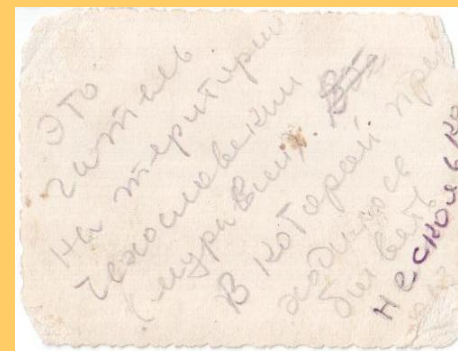 Это
читель
на територии
Чехословакии
(муравии).
В которой при
ходилось
бывать
несколько